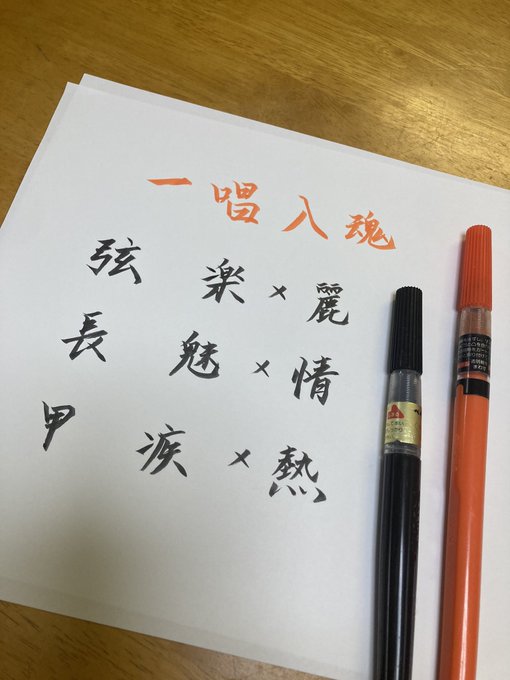 一唱入魂
弦 楽×麗
長 魅×情
甲 疾×熱